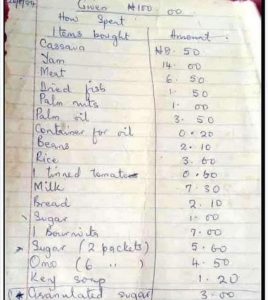 Given ₦100 00
How Spent
Items bought Amount:
Cassava ₦8 . 50
Yam 14 . 00
Meat 6 . 50
Dried fish 1 . 50
Palm nuts 1 . 00
Palm oil 3 . 50
Container for oil 0 . 20
Beans 2 . 10
Rice 3 . 60
1 tinned tomatoes 0 . 60
Milk 7 . 30
Bread 2 . 10
Sugar 1 . 00
1 Bournvita 7 . 00
Sugar (2 packets) 5 . 60
Omo (6 ") 4 . 50
Key soap 1 . 20
Granulated sugar 3 . 00